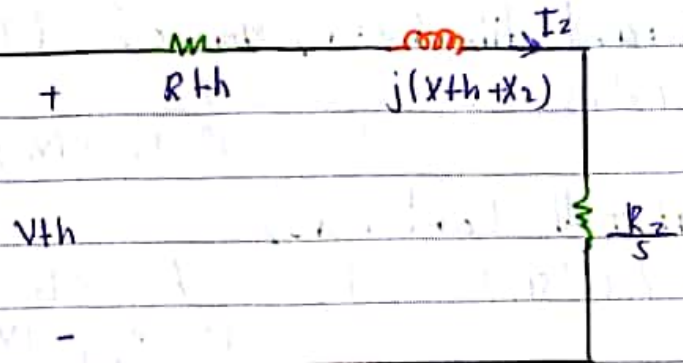 I2
+ Rth j(Xth+X2)
Vth R2/S
-